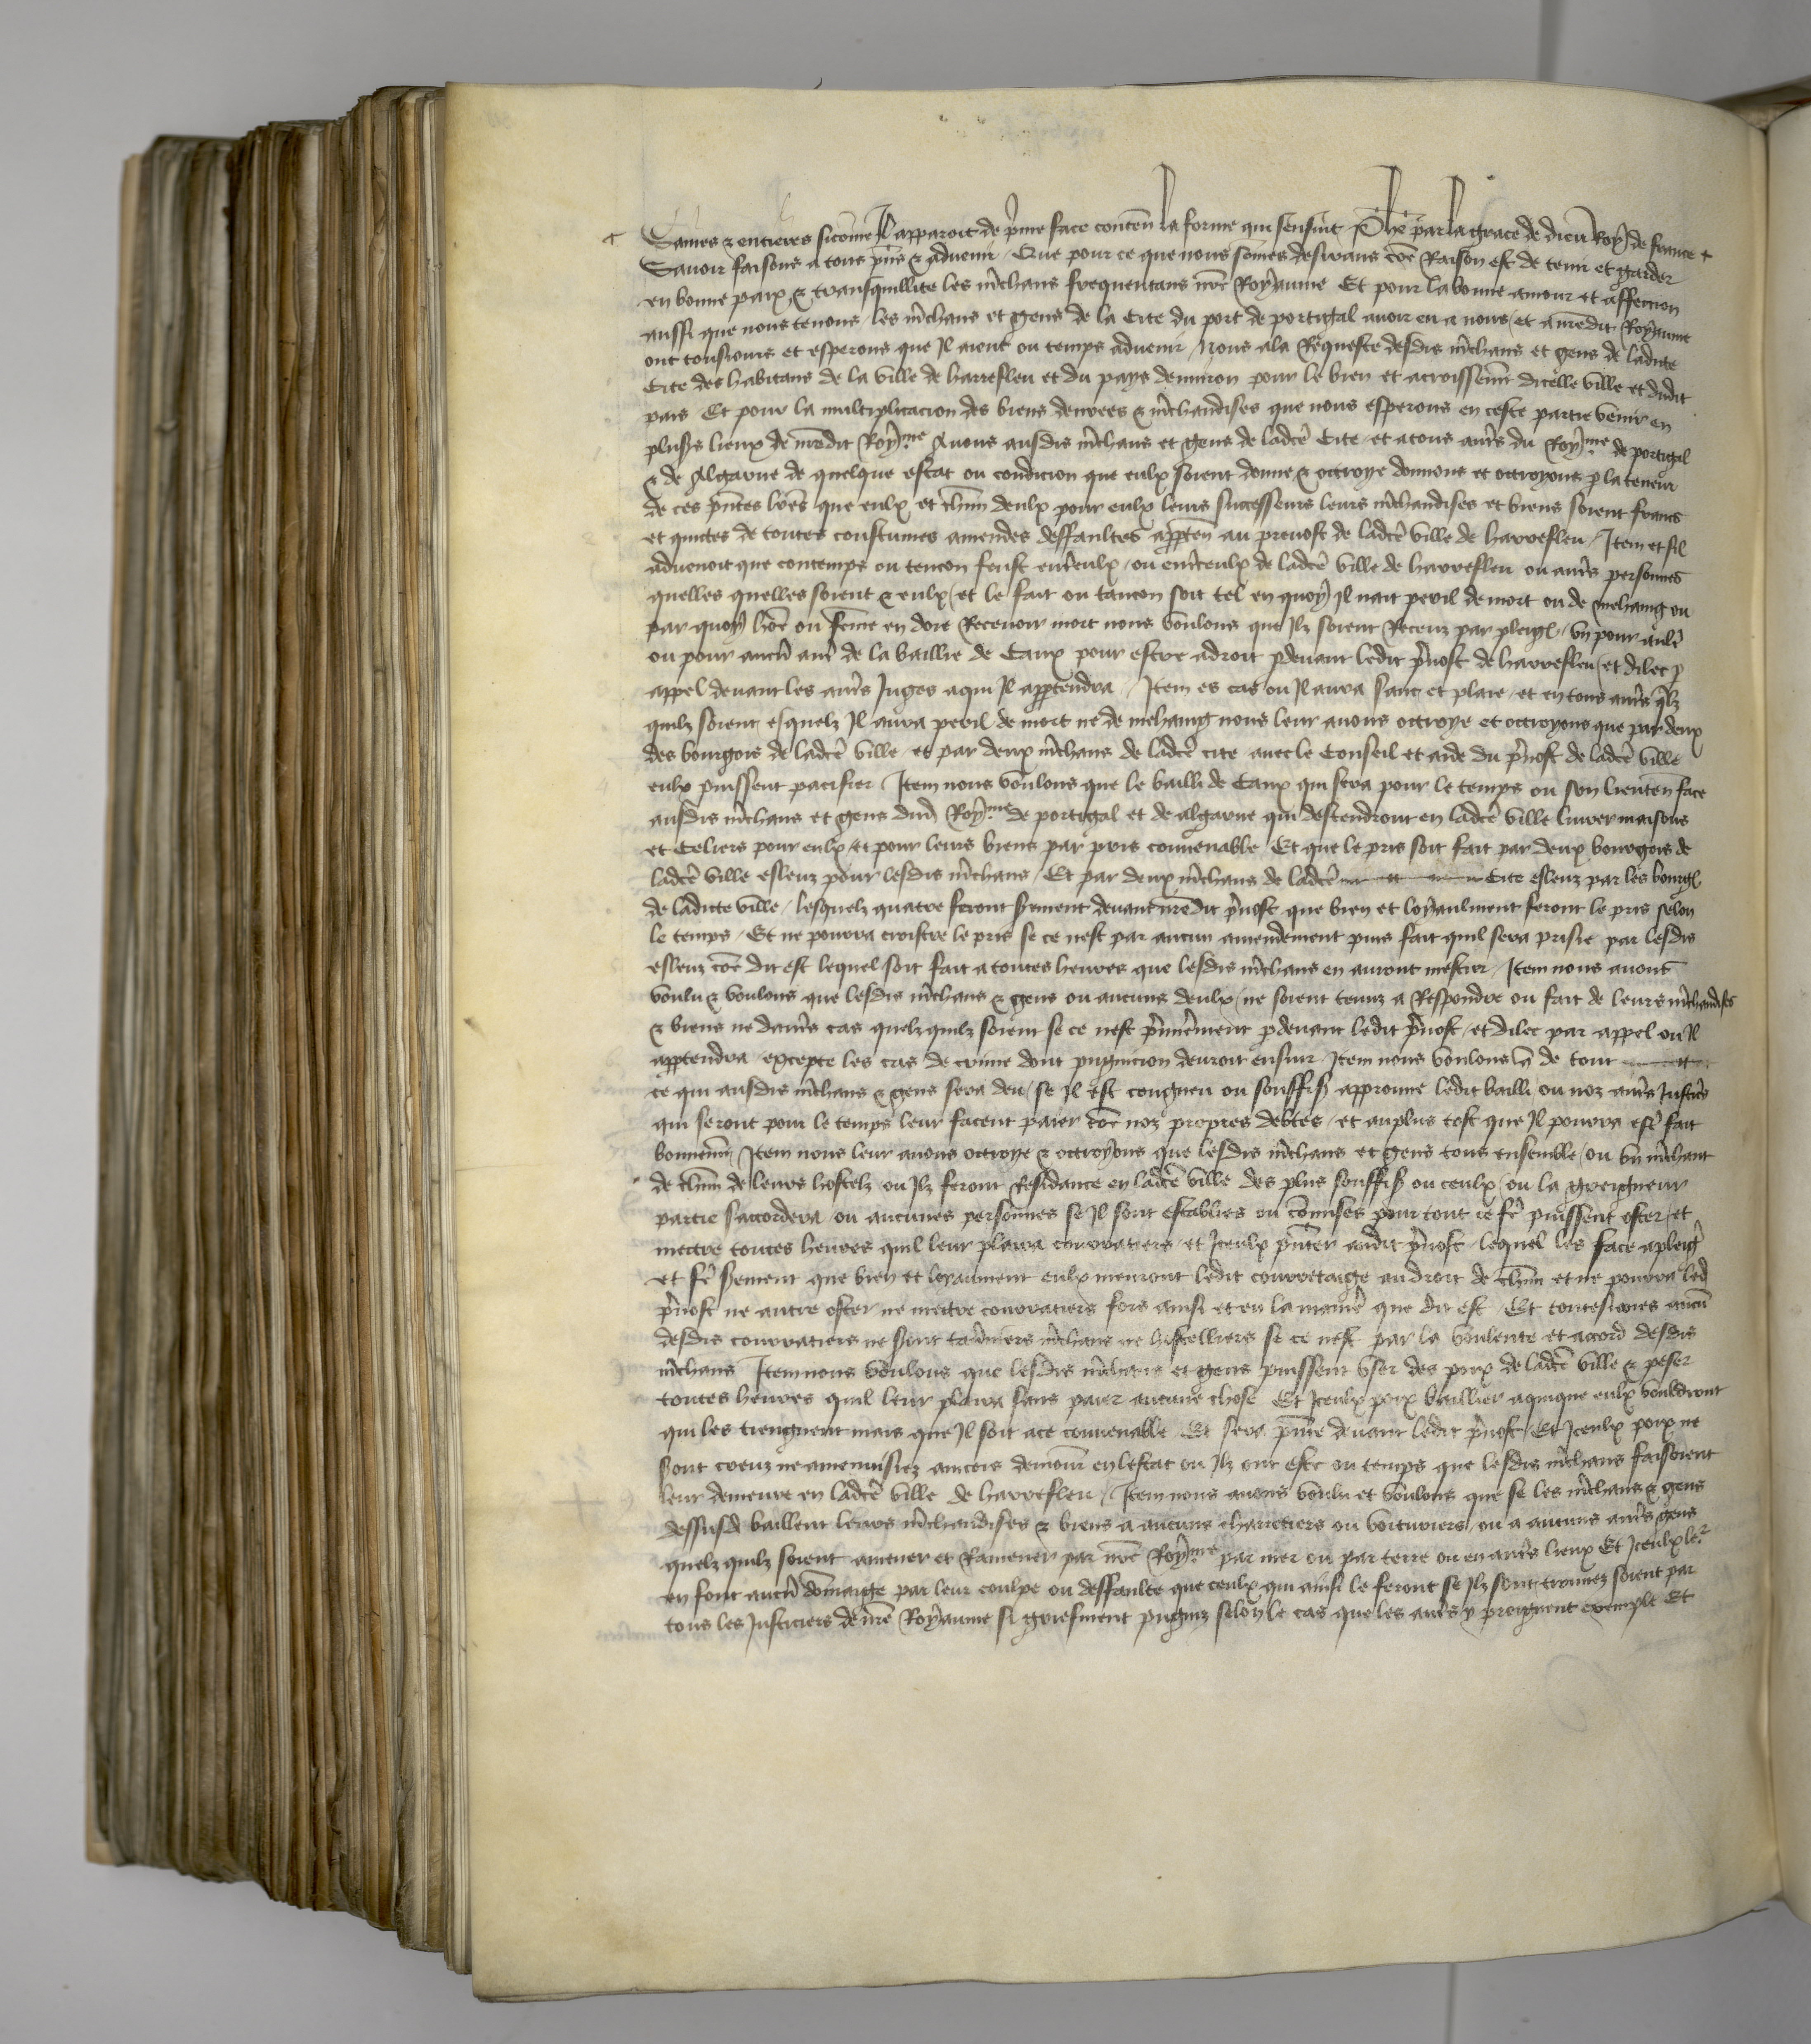 Saines & entieres sicome Il apparoit de pme face conten la forme qui sensuit Phe par la grace de dieu Roy de france
Savoir faisons a tous pns & advenir / Que pour ce que nous somes desirans coe Raison est de tenir et garder
en bonne paix & transquillite les mchans frequentans nre Royaume Et pour la bonne amour et affection
aussi que nous tenons / les mchans et gens de la Cite du port de portigal avoir eu a nous / et a nredit Royaume
ont tousiours et esperons que Il aient ou temps advenir / Nous a la Requeste desdis mchans et gens de ladicte
Cite des habitans de la ville de harrefleu et du pays denviron pour le bien et acroissemt dicelle ville et dudit
pais Et pour la multiplicacion des biens denrees & mchandises que nous esperons en ceste partie venir en
plusrs lieux de nredit Roy.me Avons ausdis mchans et gens de ladce Cite / et a tous autrs du Roy.me de portigal
& de Algarve de quelque estat ou condicion que eulx soient donne & octroye donnons et octroyons p la teneur
de ces pntes lres que eulx et chun deulx pour eulx leurs successeurs leurs mchandises et biens soient francs
et quictes de toutes coustumes amendes deffaultes apperten au prevost de ladce ville de harrefleu / Item et sil
advenoit que contemps ou tencon feust entreulx / ou entreeulx de ladce ville de harrefleu ou autrs personnes
quelles quelles soient & eulx / et le fait ou tancon soit tel en quoy Il nait peril de mort ou de mehaing ou
par quoy hoe ou feme en doie Recevoir mort nous voulons que Ilz soient Receuz par pleiges / vn pour aultre
ou pour aucun autre de la baillie de Caux pour estre adroit pdevant ledit pvost de harrefleu / et dilec p
appel devant les autrs Juges a qui Il apptendra / Item es cas ou Il aura sanc et plaie / et en tous autrs qlz
quilz soient / esquelz Il aura peril de mort ne de mehaing nous leur avons octroye et octroyons que par deux
des bourgois de ladce ville / et par deux mchans de ladce cite avec le Conseil et aide du pvost de ladce ville
eulx puissent pacifier Item nous voulons que le bailli de Caux qui sera pour le temps ou son lieuten face
ausdis mchans et gens dud Roy.me de portigal et de algarve qui descendront en ladce ville livrer maisons
et Celiers pour eulx / et pour leurs biens par pris convenable / Et que le pris soit fait par deux bourgois de
ladce ville esleuz pour lesdis mchans / Et par deux mchans de ladce Cite esleuz par les bourgs
de ladicte ville / lesquelz quatre feront serment devant nredit pvost que bien et loyaulment feront le pris selon
le temps / Et ne pourra croistre le pris se ce nest par aucun amendement puis fait quil sera prisie par lesdis
esleuz coe dit est lequel soit fait a toutes heures que lesdis mchans en auront mestier / Item nous avons
voulu & voulons que lesdis mchans & gens ou aucuns deulx / ne soient tenuz a Respondre ou fait de leurs mchandises
& biens ne dautrs cas quelzquilz soient se ce nest pmierement pdevant ledit pvost / et dilec par appel ou Il
apptendra / excepte les cas de crime dont pugnicion devroit ensuir / Item nous voulons q de tout
ce qui ausdis mchans & gens sera deu / se Il est congneu ou souffis approuve ledit bailli ou noz autrs Justics
qui seront pour le temps leur facent paier coe noz propres debtes / et au plus tost que Il pourra estre fait
bonnemt / Item nous leur avons octroye & octroyons que lesdis mchans et gens tous ensemble / ou vn mchant
de chun de leurs hostelz ou Ilz feront Residance en ladce ville des plus souffis ou ceulx / ou la greigneur
partie saccordera / ou aucunes personnes se Il sont establies ou comises pour tout ce fe puissent oster / et
mectre toutes heures quil leur plaira courratiers / et Iceulx pnter audit pvost / lequel les face aplegr
et fe serment que bien et loyaument eulx menront ledit courretaige au droit de chun et ne pourra led
pvost ne autre oster ne mectre courratiers fors ainsi et en la manie que dit est / Et toutesvoies aucun
desdis courratiers ne soient taverniers mchans ne hostelliers se ce nest par la voulente et accord desdis
mchans Item nous voulons que lesdis mchans et gens puissent vser des poix de ladce ville & peser
toutes heures quil leur plaira sans paier aucune chose Et Iceulx poix baillier a quique eulx vouldront
qui les tiengnent mais que Il soit a ce convenable Et sera pnte devant ledit pvost / Et Iceulx poix ne
sont creuz ne amenuisiez aincois demourt en lestat ou Ilz ont este ou temps que lesdis mchans faisoient
leur demeure en ladce ville de harrefleu / Item nous avons voulu et voulons que se les mchans & gens
dessusd baillent leurs mchandises & biens a aucuns charretiers ou voituriers / ou a aucuns autrs gens
quelz quilz soient amener et Ramener par nre Roy.me par mer ou par terre ou en autrs lieux Et Iceulx le.r
en font aucun domaige par leur coulpe ou deffaulte que ceulx qui ainsi le feront se Ilz sont trouvez soient par
tous les Justiciers de nre Royaume si griefment pugniz selon le cas que les autrs y preignent exemple Et